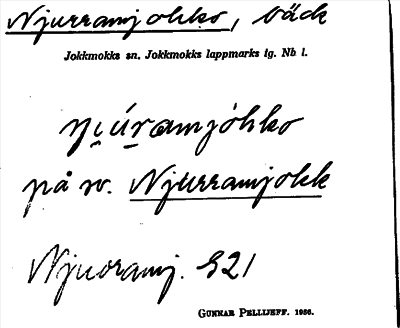 Njurramjohko, bäck
Jokkmokks sn. Jokkmokks lappmarks tg. Nb l.
ńi̯úramjóhko
på sv. Njurramjokk
Njuoramj. S21
GUNNAR PELLIJEFF. 1956.